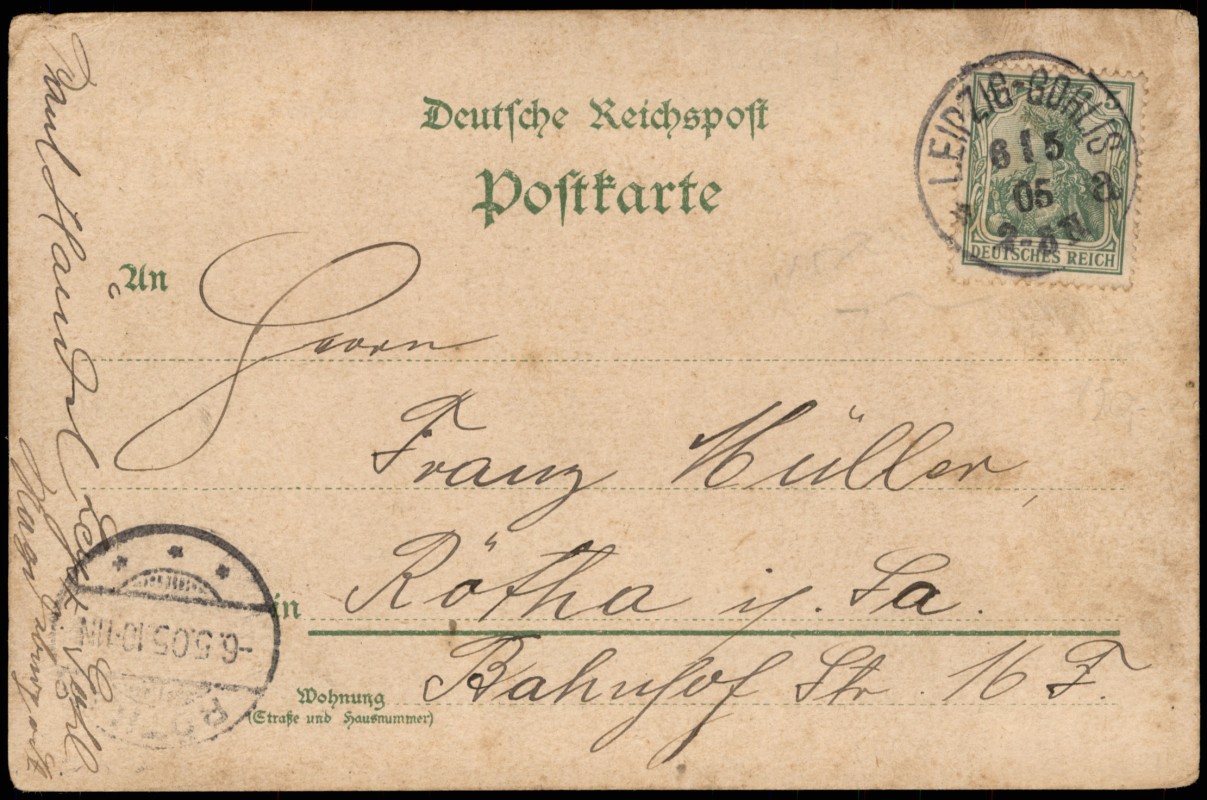 Deutsche Reichspost
Postkarte
LEIPZIG-GOHLIS
6 5
05 a
2-3 N.
DEUTSCHES REICH
An
Herrn
Franz Müller,
in Rötha i/. Sa.
Wohnung
(Straße und Hausnummer)
Bahnhof Str. 16 F.
-6.5.05.10-11N
Paul